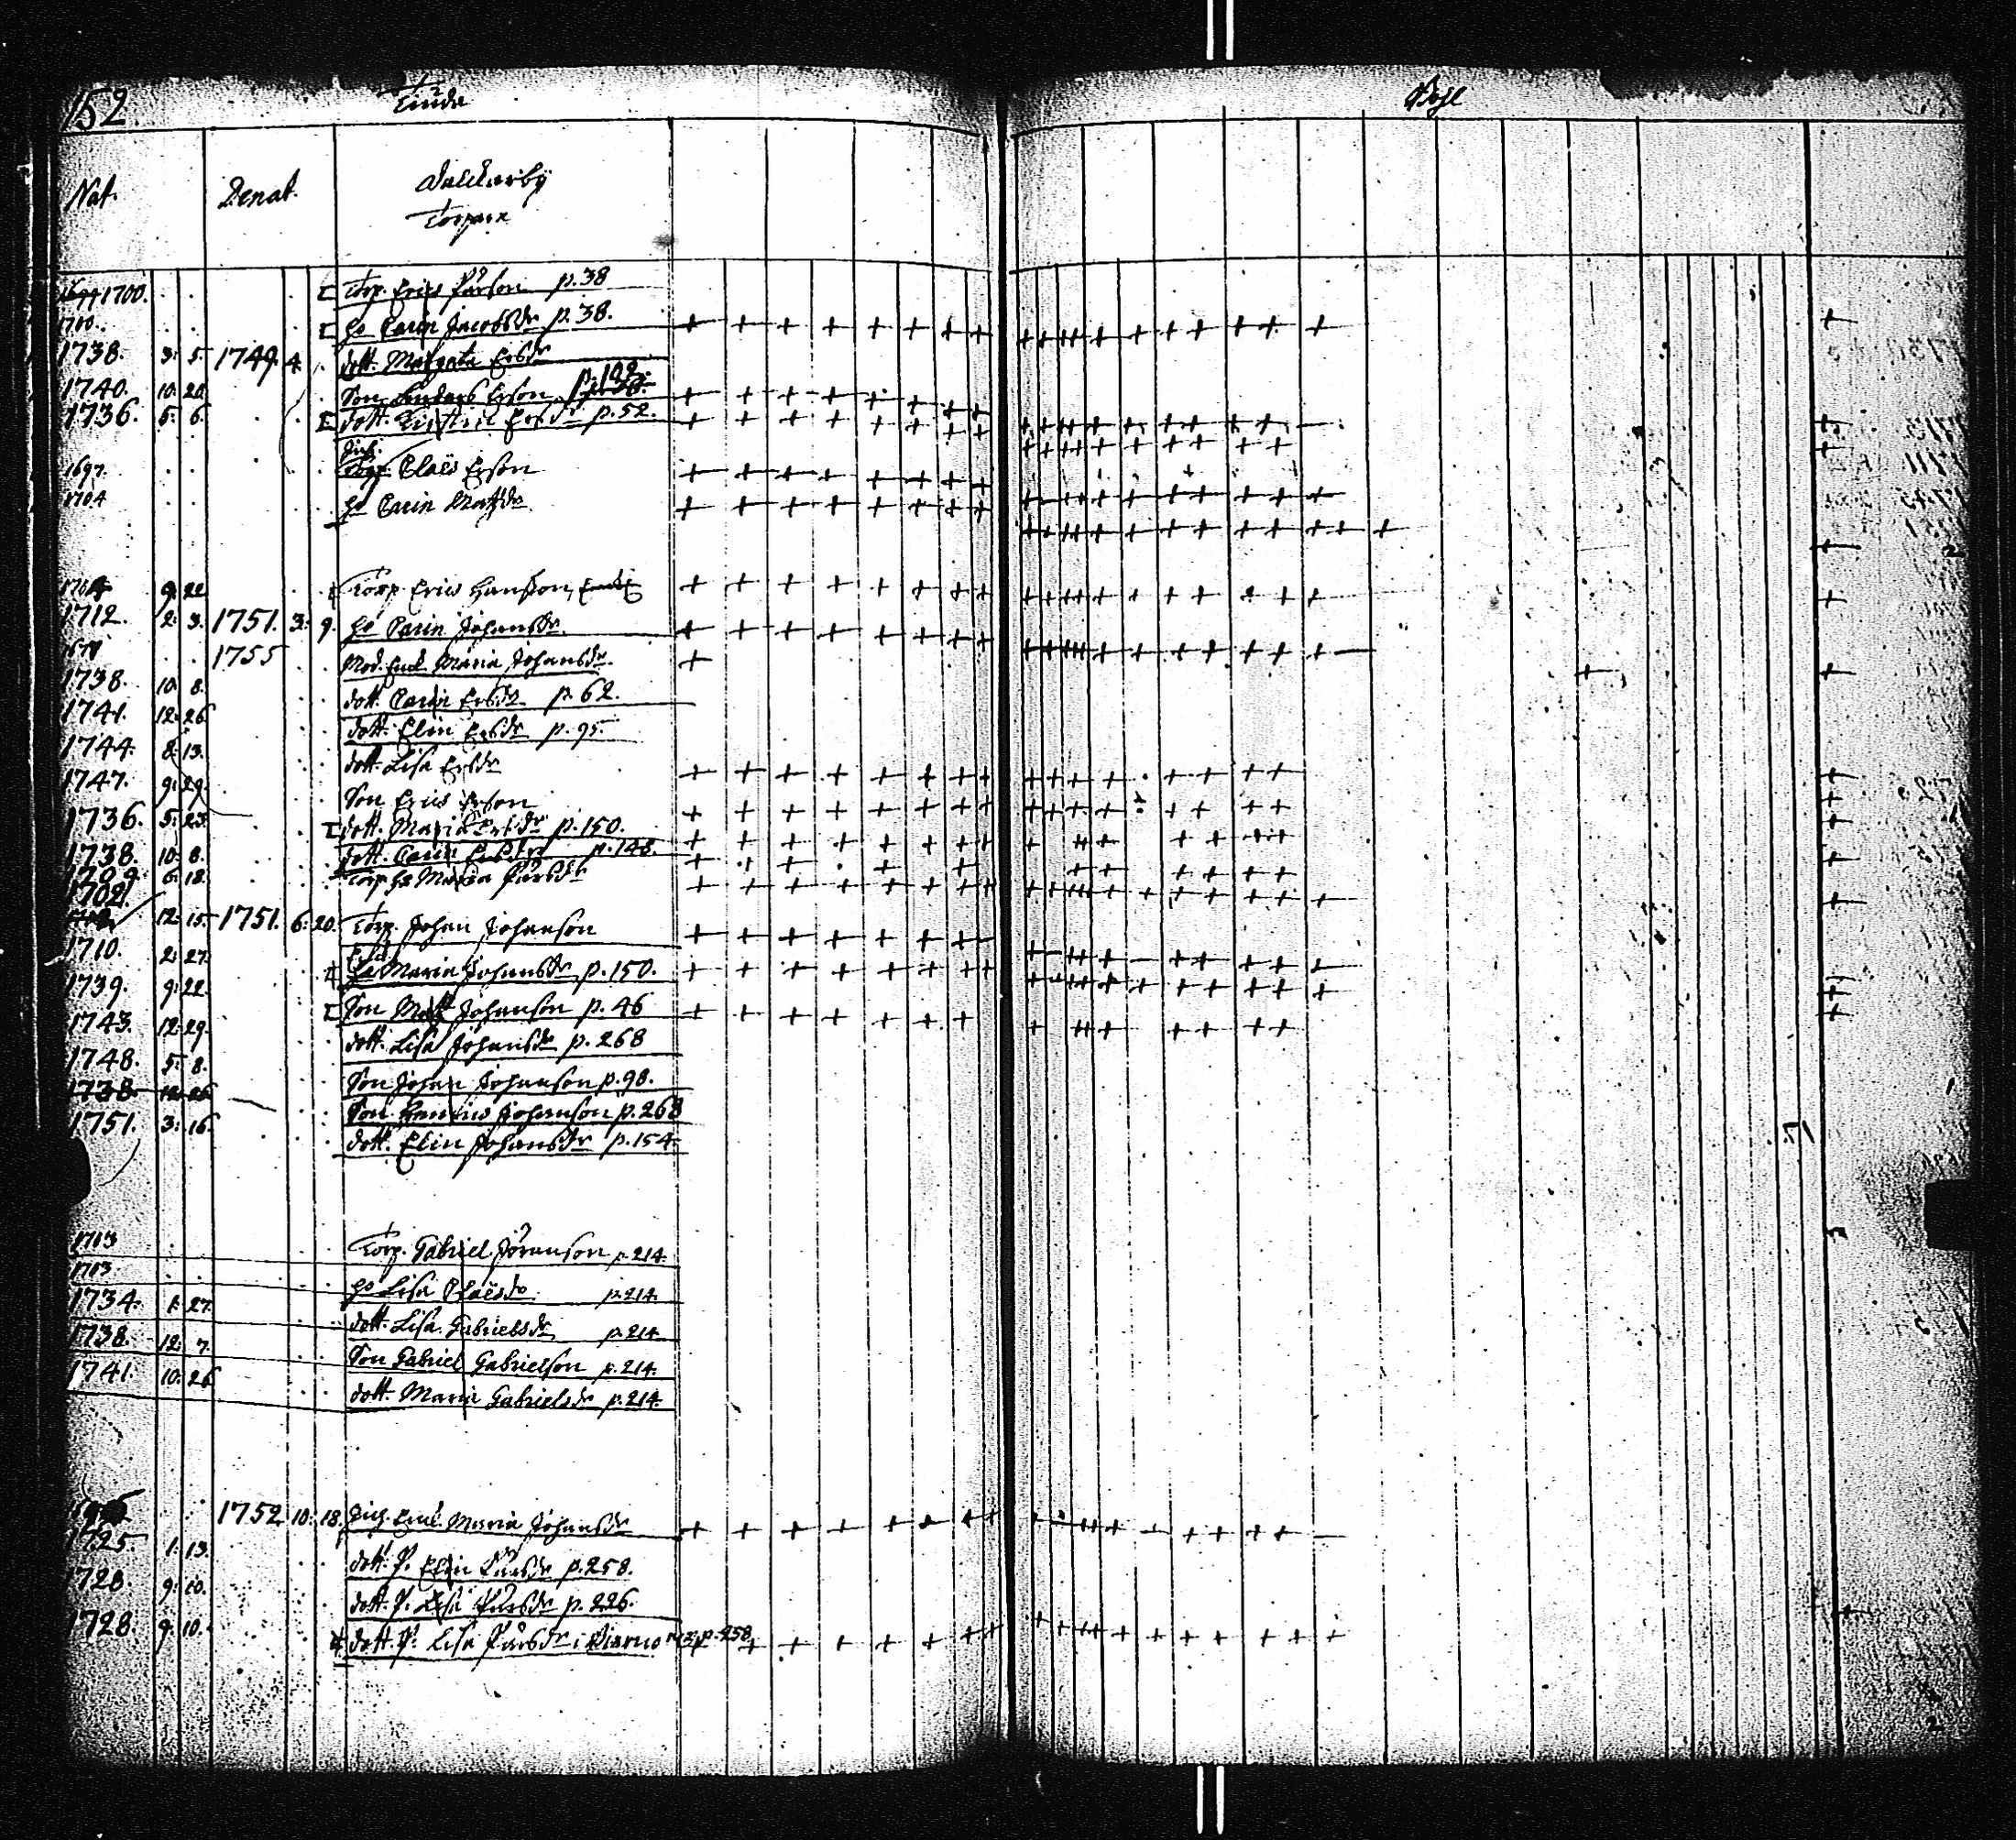 152.
Nat. Denat.
Torpare
1700. Torp. Erics Pårson p. 38
1700. h. Carin Jacobsdr p. 38.
1738. 3: 5. 1749. 4. dott. Margeta Ersdr
1740. 10: 20. Son Anders Erson p. 102.
1736. 5: 6. dott. Kirstin Ersdr p. 52.
Inh.
1697. Claës Erson
1704 h. Carin Matsdr
9: 22. Torp. Erics Hanson,
1712. 2: 3. 1751. 3: 9. h. Carin Johansdr
1755 Mod. Enk. Maria Johansdr
1738. 10: 8. dott. Carin Ersdr p. 62.
1741. 12: 26. dott. Elin Ersdr p. 95.
1744. 8: 13. dott. Lisa Ersdr
1747. 9: 29. Son Erics Erson
1736. 5: 23. dott. Maria Ersdr p. 150.
1738. 10: 8. dott. Carin Ersdr p. 148.
6: 18. Torp. h. Maria Pårsdr
1702.
12: 15. 1751. 6: 20. Torp. Johan Johanson
Enk.
1710. 2: 27. Maria Johansdr p. 150.
1739. 9: 22. Son Matt Johanson p. 46
1743. 12: 29. dott. Lisa Johansdr p. 268
1748. 5: 8. Son Johan Johanson p. 98.
1738. 12: 26. Son Henrics Johanson p. 268
1751. 3: 16. dott. Elin Johansdr p. 154.
1713 Torp. Gabriel Jöranson p. 214.
1713 h. Lisa Claësdr p. 214.
1734. 1: 27. dott. Lisa Gabrielsdr p. 214
1738. 12: 7. Son Gabriel Gabrielson p. 214.
1741. 10: 26. dott. Maria Gabrielsdr p. 214.
1752 10: 18. Inh. Enk. Maria Johansdr
1725. 1: 13. dott. P. Elin Pårsdr p. 258.
1728. 9: 10. dott. P. Lisa Pårsdr p. 226.
1728. 9: 10. dott. P. Lisa Pårsdr i p. 258